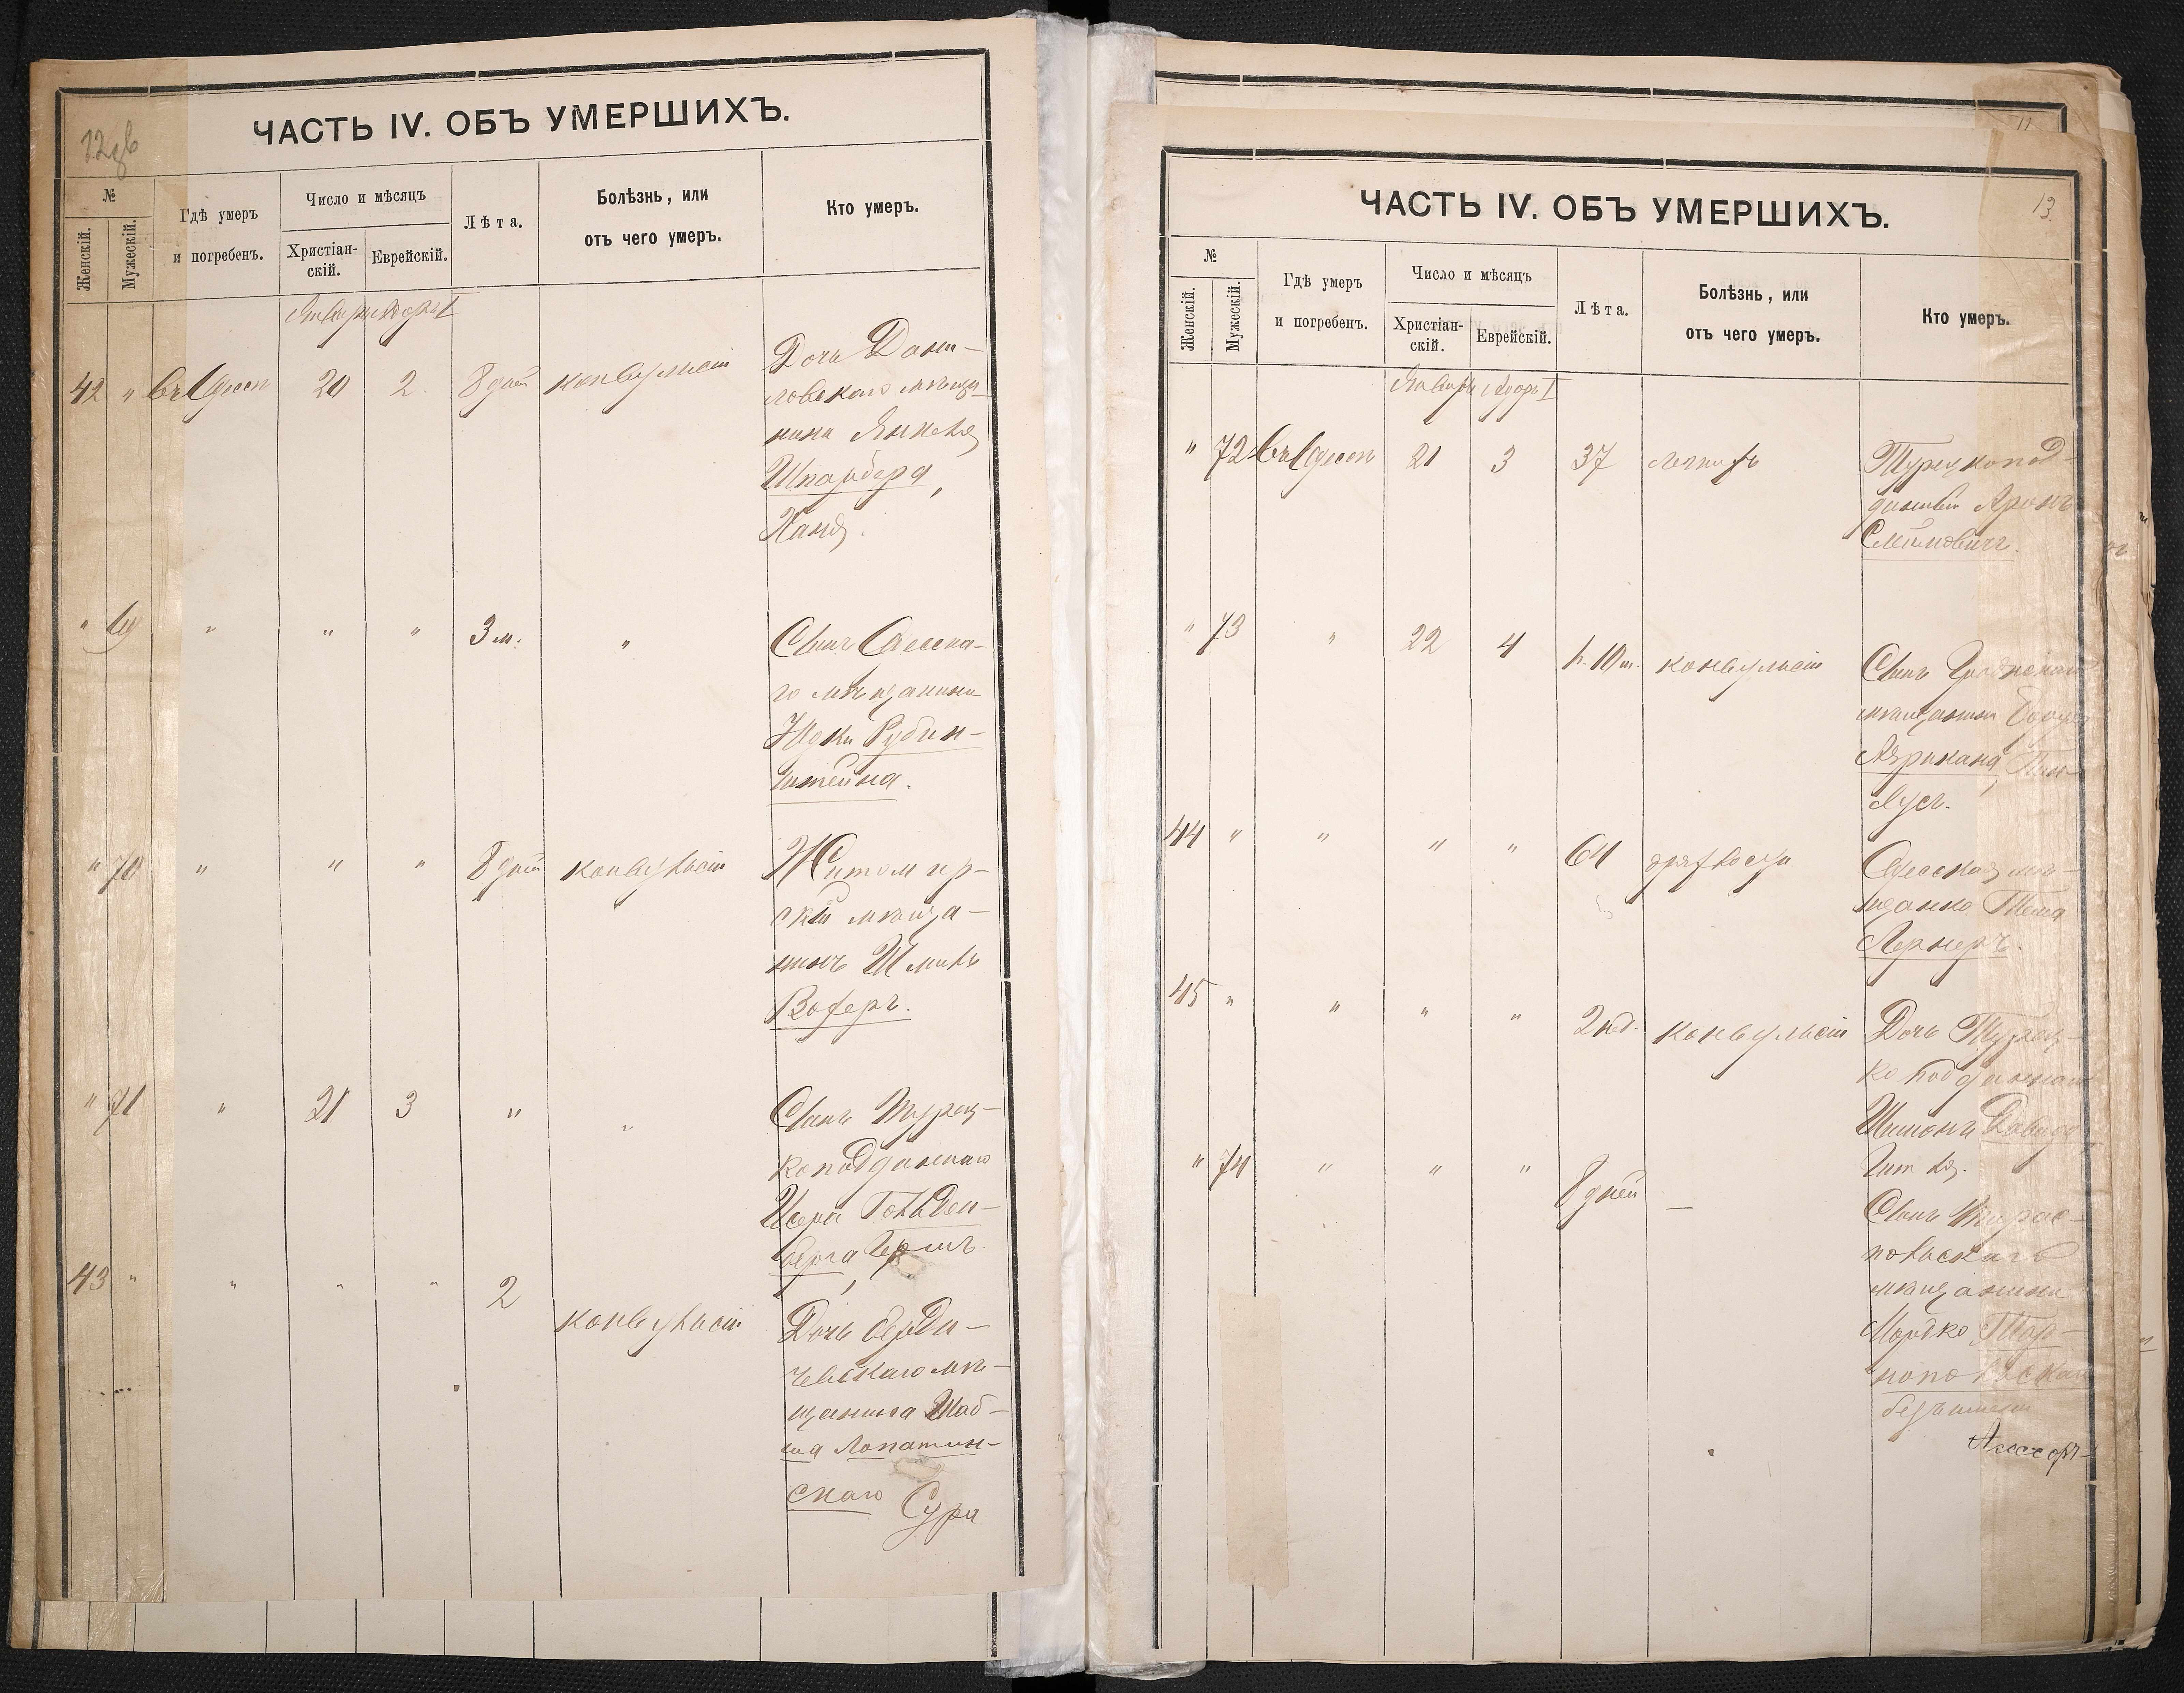 12
ЧАСТЬ IV. ОБЪ УМЕРШИХЪ.
№
Женскій.
Мужескій.
Гдѣ умеръ
и погребенъ.
Число и мѣсяцъ
Христіан-
скій.
Еврейскій.
Лѣта.
Болѣзнь, или
отъ чего умеръ.
Кто умеръ.
42 " въ Одессѣ 20 2. 8 дней конвульсіи
Дочь Дани-
ловскаго мѣща
нина Янкеля
Шпарберга,
Ханя.
" 69 " " " 3 м. "
Сынъ Одесска-
го мѣщанина
Юдки Рубин-
штейна.
" 70 " " " 8 дней конвульсіи
Житомир-
скій мѣща-
нинъ Шмиль
" 71 " 21 3 " "
Сынъ Турец-
коподданнаго
Исера Гольден-
берга, Гершъ.
43 " " " " 2 конвульсіи
Дочь берди-
чевскаго мѣ-
щанина Шаб-
са Лопатин-
скаго Сура
11
13.
ЧАСТЬ IV. ОБЪ УМЕРШИХЪ.
№
Женскій.
Мужескій.
Гдѣ умеръ
и погребенъ.
Число и мѣсяцъ
Христіан-
скій.
Еврейскій.
Лѣта.
Болѣзнь, или
отъ чего умеръ.
Кто умеръ.
Январь Адоръ I
" 72 въ Одессѣ 21 3 37
Турецкопод-
данный Аронъ
" 73 " 22 4 1. 10 м. конвульсіи
Сынъ
мѣщанина
Пин-
хусъ.
44 " " " " 64
Одесская мѣ-
щанка
Лернеръ.
45 " " " " 2 нед. конвульсіи
Дочь Турец-
коподданнаго
Шимона Давида
" 74 " " " 8 дней —
Сынъ Тирас-
польскаго
мѣщанина
Мордко Тор-
нопольскаго
безъ имени